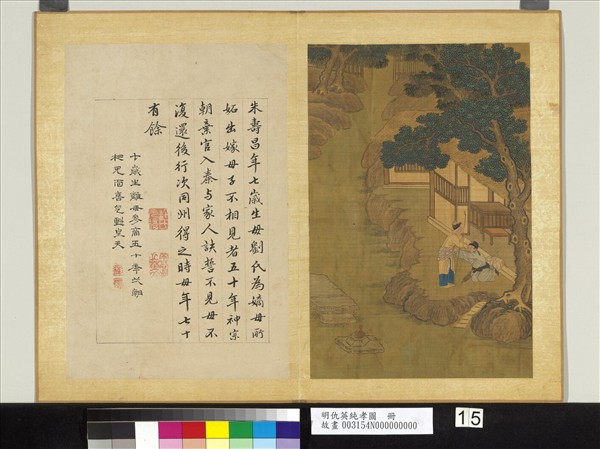 朱壽昌年七歲生母劉氏為嫡母所
妬出嫁母子不相見者五十年神宗
朝棄官入秦与家人訣誓不見母不
復還後行次同州得之時母年七十
有餘
七歲生離母參商五十年一朝
相見面喜氣動皇天
明仇英純孝圖　冊
故畫 003154N000000000
15